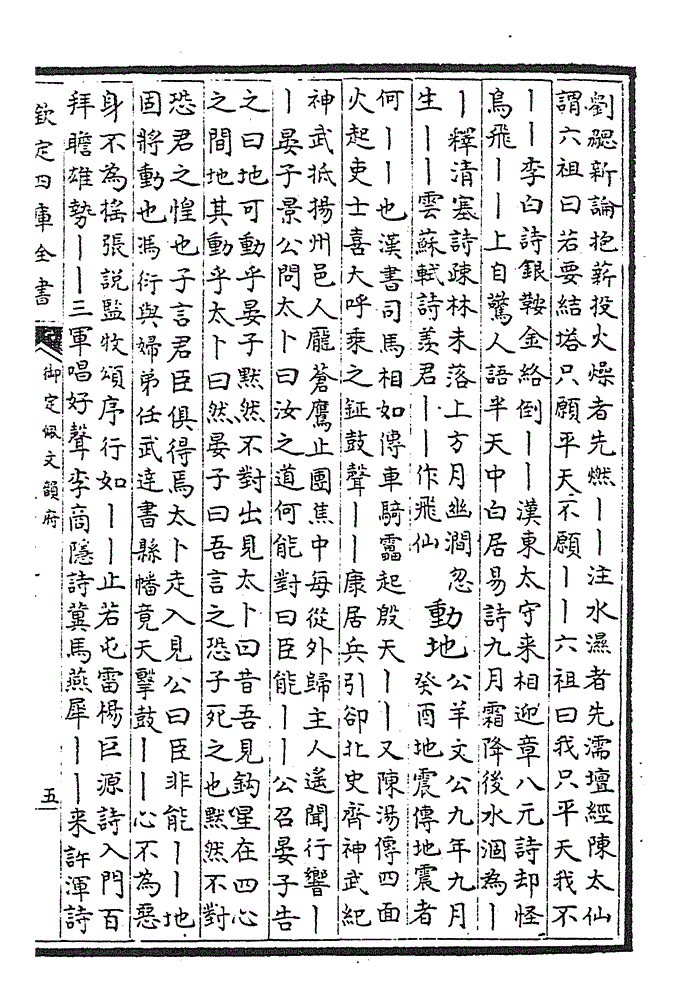 劉勰新論抱薪投火燥者先燃丨丨注水濕者先濡壇經陳太仙
謂六祖曰若要結塔只願平天不願丨丨六祖曰我只平天我不
丨丨李白詩銀鞍金絡倒丨丨漢東太守来相迎章八元詩却怪
鳥飛丨丨上自驚人語半天中白居易詩九月霜降後水涸為丨
丨釋清塞詩疎林未落上方月幽澗忽
生丨丨雲蘇軾詩羡君丨丨作飛仙
動地
公羊文公九年九月
癸酉地震傳地震者
何丨丨也漢書司馬相如傳車騎靁起殷天丨丨又陳湯傳四面
火起吏士喜大呼乘之鉦鼓聲丨丨康居兵引卻北史齊神武紀
神武抵揚州邑人龎蒼鷹止團焦中每從外歸主人遙聞行響丨
丨晏子景公問太卜曰汝之道何能對曰臣能丨丨公召晏子告
之曰地可動乎晏子黙然不對出見太卜曰昔吾見鈎星在四心
之間地其動乎太卜曰然晏子曰吾言之恐子死之也黙然不對
恐君之惶也子言君臣俱得焉太卜走入見公曰臣非能丨丨地
固將動也馮衍與婦弟任武達書縣幡竟天擊鼓丨丨心不為惡
身不為摇張說監牧頌序行如丨丨止若屯雷楊巨源詩入門百
拜瞻雄勢丨丨三軍唱好聲李商隱詩冀馬燕犀丨丨来許渾詩
欽定四庫全書
御定佩文韻府
五